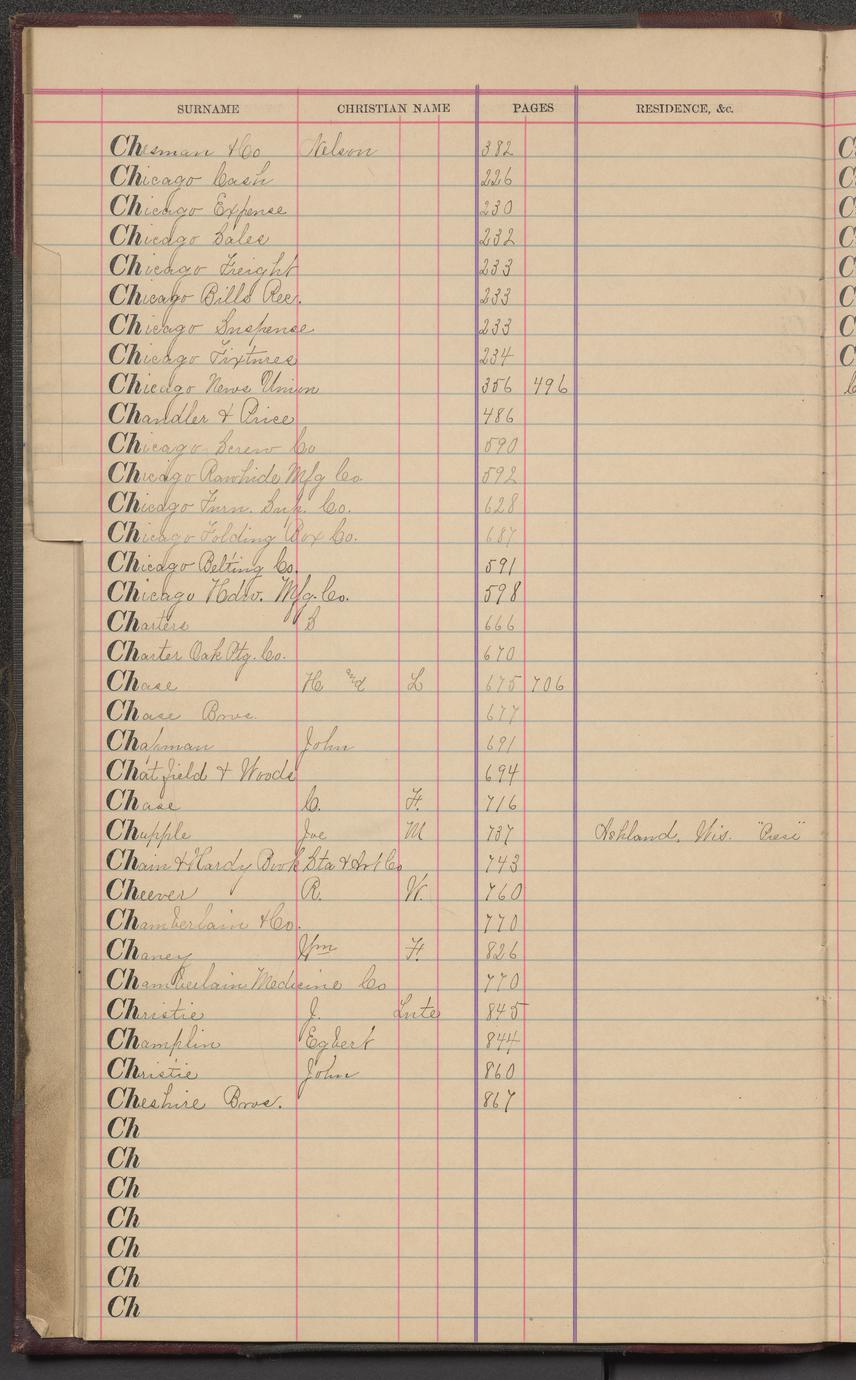 SURNAME CHRISTIAN NAME PAGES RESIDENCE, &c.
Chesman & Co Nelson 382
Chicago Cash 226
Chicago Expense 230
Chicago Sales 232
Chicago Freight 233
Chicago Bills Rec. 233
Chicago Suspense 233
Chicago Fixtures 234
Chicago News Union 356 496
Chandler & Price 486
Chicago Screw Co 590
Chicago Rawhide Mfg Co. 592
Chicago Furn. Sup. Co. 628
Chicago Folding Box Co. 687
Chicago Belting Co. 591
Chicago Hdw. Mfg. Co. 598
Charters S 666
Charter Oak Ptg. Co. 670
Chase H and L 675 706
Chase Bros. 677
Chapman John 691
Chatfield & Woods 694
Chase C. F. 716
Chapple Joe M 737 Ashland, Wis. "Press"
Chain & Hardy Book Sta & Art Co 743
Cheever R. W. 760
Chamberlain & Co. 770
Chaney Wm F. 826
Chamberlain Medicine Co 770
Christie J. Lute 845
Champlin Egbert 844
Christie John 860
Cheshire Bros. 867
Ch
Ch
Ch
Ch
Ch
Ch
Ch